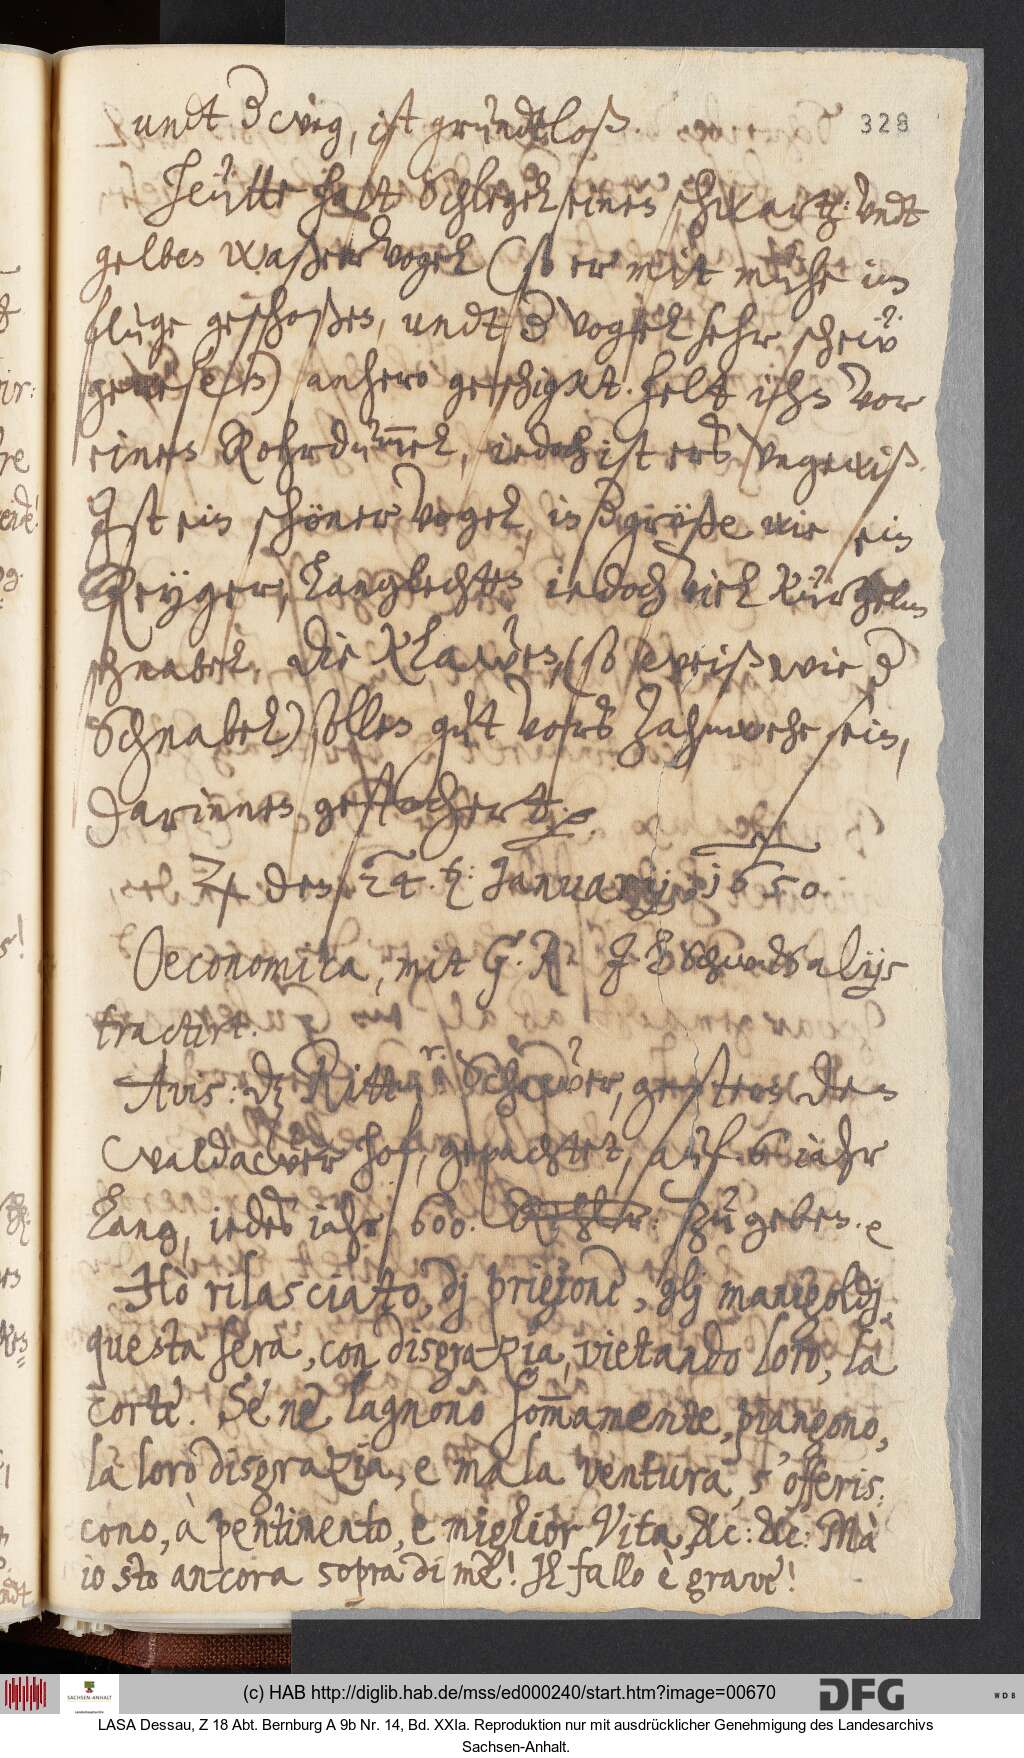 328
undt d weg, ist grundtloß.
Heütte hatt Schlegel einen schwartz: undt
gelben waßer vogel (so er mit mühe im
fluge geschoßen, undt d vogel sehr schew
gewesen) anhero geschigkt. helt ihn vor
einen Rohrdummel, iedoch ist ers ungewiß.
Ist ein schöner vogel, in größe wie ein
Reyger, Langlechten iedoch viel kürtzern
schnabel. Die Klawen, (so weiß wie d
Schnabel) sollen gut vors Zahnwehe sein,
darinnen gestochert.
den 24. Januarij 1650.
Oeconomica, mit G. R. Schwartz alijs
tractirt.
Avis: dz Rittm. Schewer, gestern den
Waldawer hof, gepachtet, auf 6 iahr
Lang, iedes iahr 600. zu geben.
Hò rilasciato, dj prigione, glj manigoldj,
questa sera, con disgrazia, vietando loro, la
corte. Se ne lagnono som̄amente, piangono,
la loro disgrazia, e mala ventura, s'offeris:
cono, à pentimento, e miglior Vita, &c: &c: Mà
io sto ancora sopra di me! Il fallo è grave!
(c) HAB http://diglib.hab.de/mss/ed000240/start.htm?image=00670
SACHSEN-ANHALT
DFG
WDB
LASA Dessau, Z 18 Abt. Bernburg A 9b Nr. 14, Bd. XXIa. Reproduktion nur mit ausdrücklicher Genehmigung des Landesarchivs
Sachsen-Anhalt.